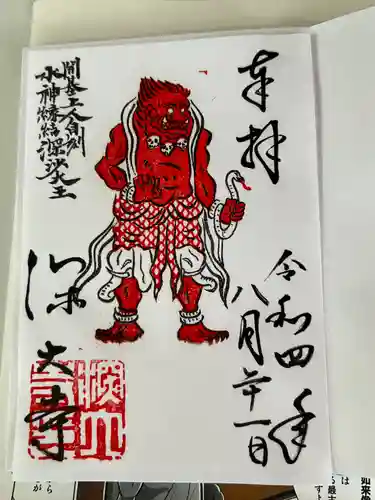 奉拝
令和四年
八月二十一日
開基上人自刻
水神縁結深沙大王
深大寺